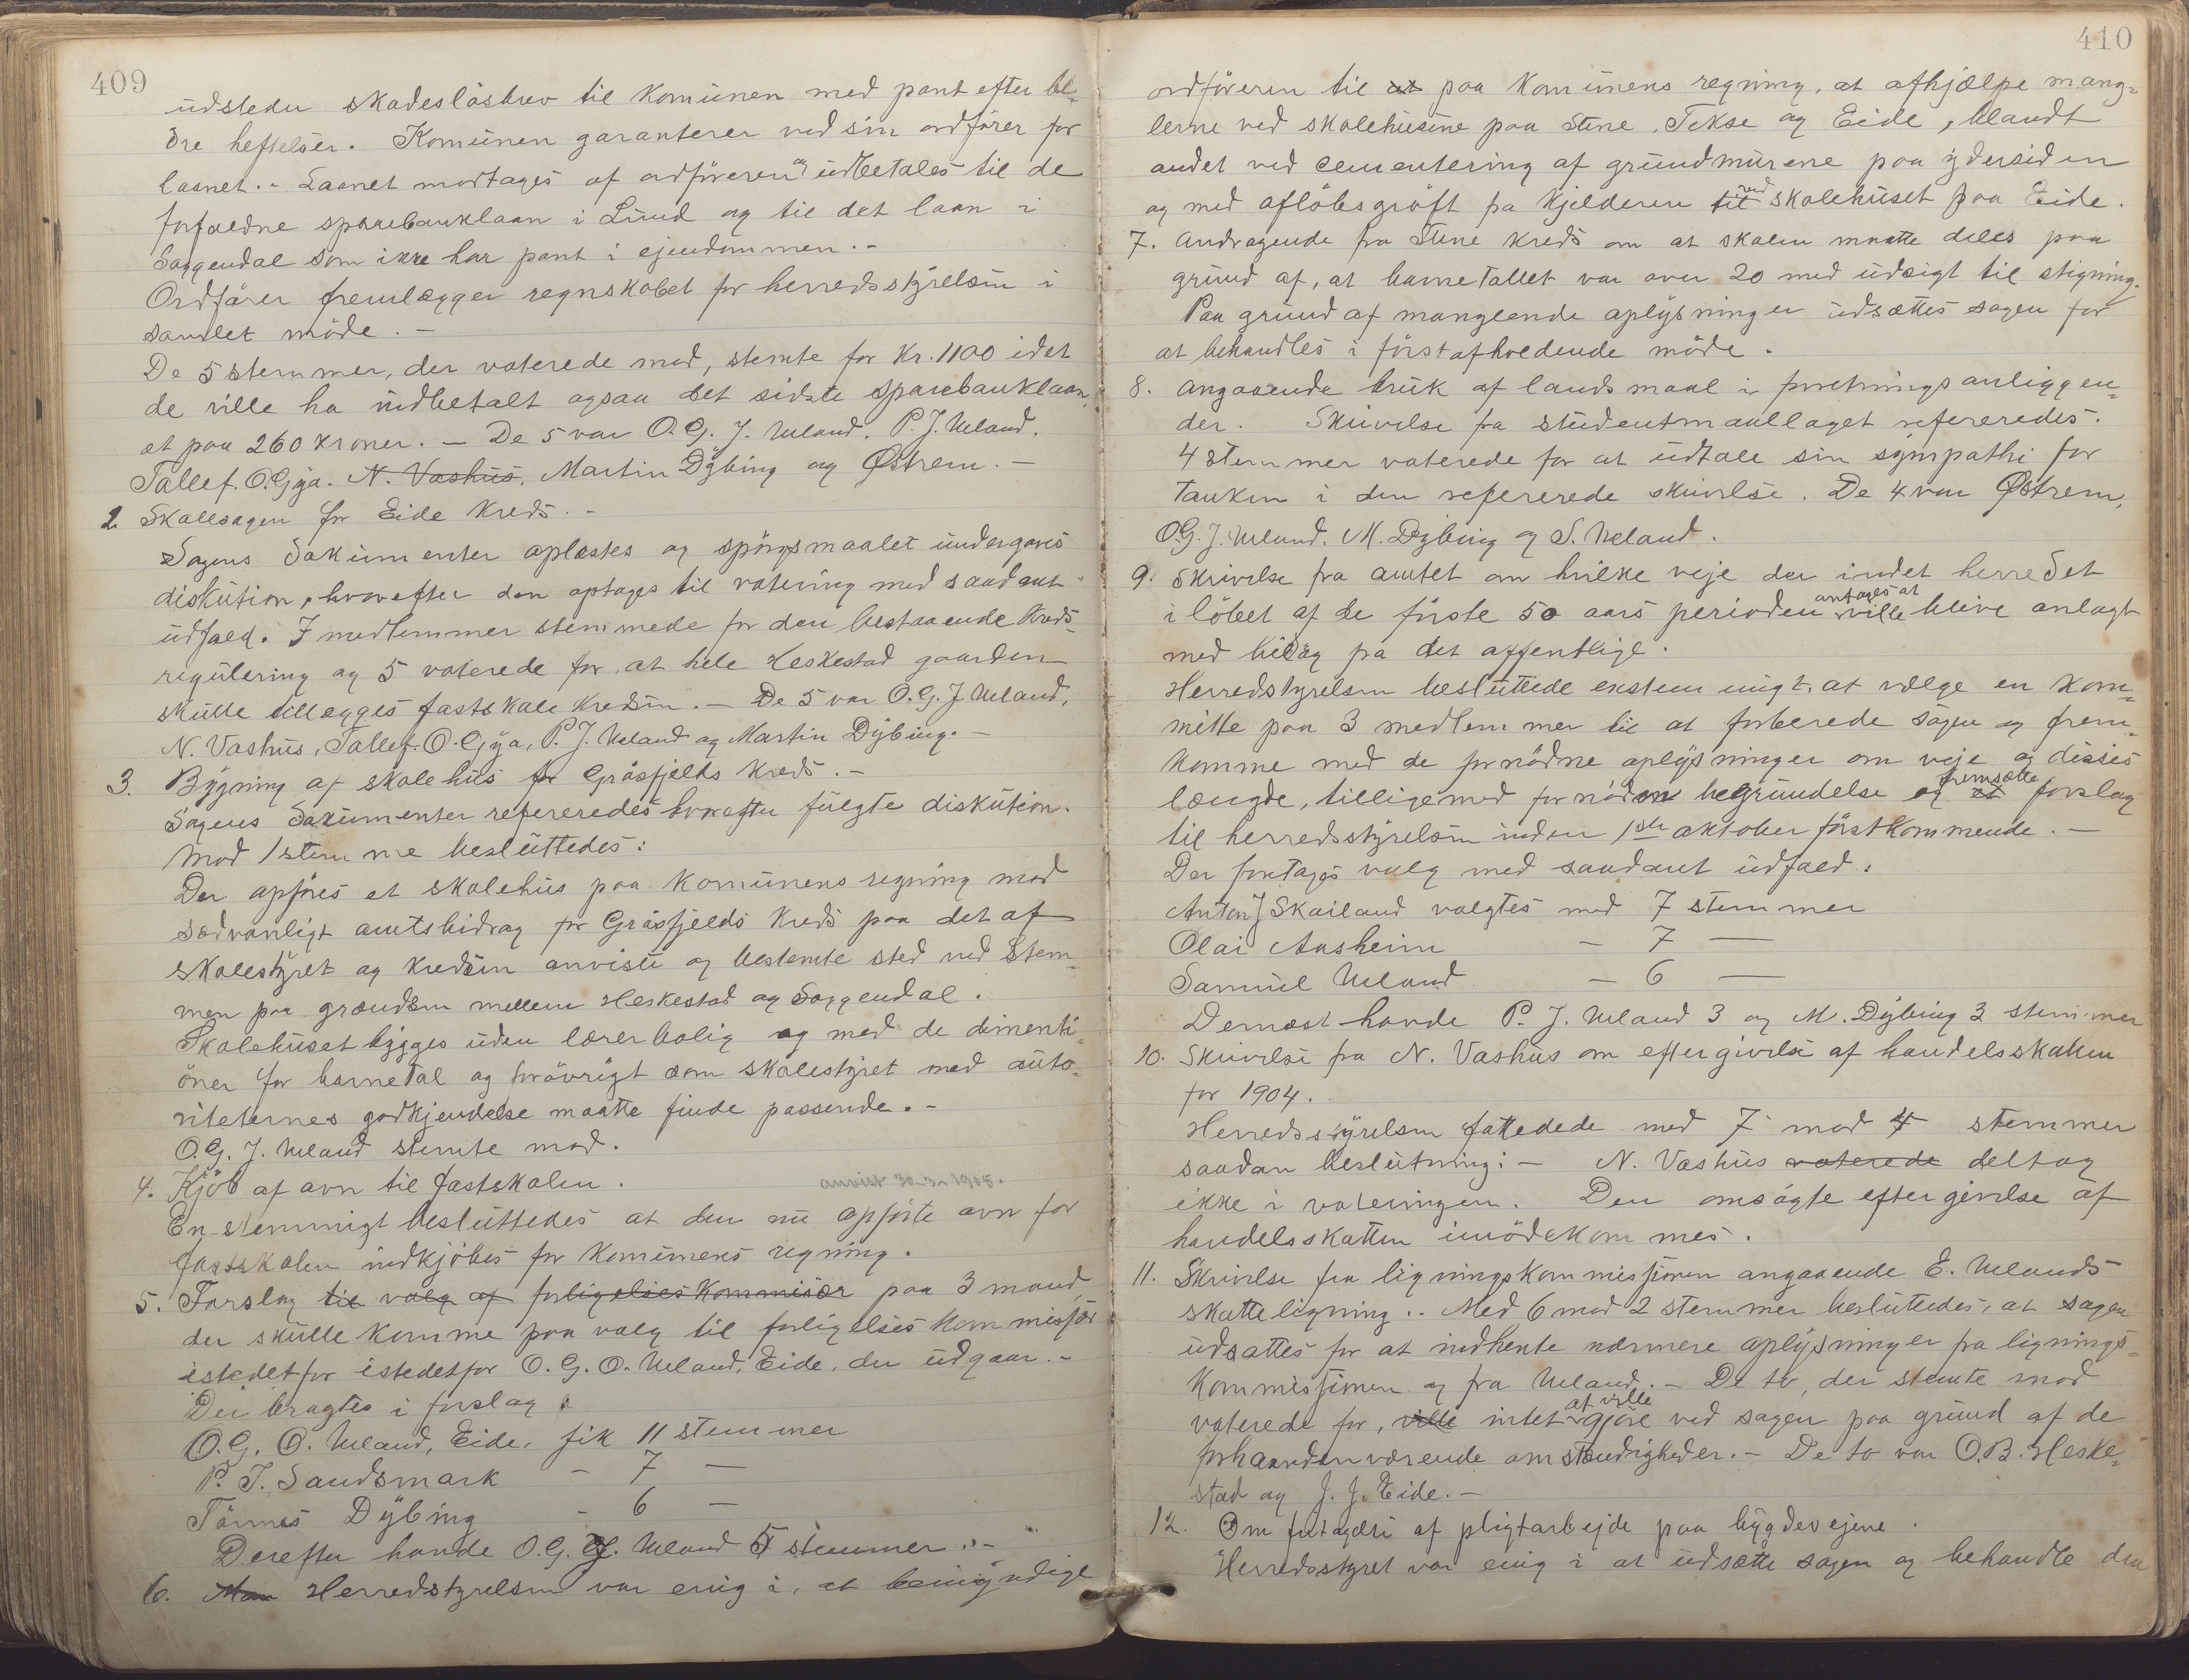 409
udsteder skadesløsbrev til Komunen med pant efter æl-
dre heftelser. Komunen garanterer ved sin ordfører for
laanet. - Laanet modtages af ordføreren og udbetales til de
forfaldne sparebanklaan i Lund og til det laan i
Soggendal som ikke har pant i ejendommen. -
Ordfører fremlægger regnskabet for herredsstyrelsen i
samlet møde. -
De 5 stemmer, der voterede mod, stemte for Kr. 1100 idet
de ville ha indbetalt ogsaa det sidste sparebanklaan,
et paa 260 kroner. - De 5 var O. G. J. Ueland, P. J. Ueland,
Tallef. O. Gya. N. Vashus, Martin Dybing og Østrem. -
2 Skolesagen for Eide Kreds. -
Sagens dokumenter oplæstes og spørgsmaalet undergaves
diskution, hvorefter den optages til votering med saadant
udfald. 7 medlemmer stemmede for den bestaaende Kreds-
regulering og 5 voterede for at hele Heskestad gaarden
skulle tillægges fastskole kredsen. - De 5 var O. G. J. Ueland,
N. Vashus, Tallef. O. Gya, P. J. Ueland og Martin Dybing. -
3. Bygning af skolehus for Gråsfjelds Kreds. -
Sagens Dokumenter refereredes hvorefter fulgte diskution.
Mod 1 stemme besluttedes:
Der opføres et skolehus paa Komunens regning mod
sædvanligt amtsbidrag for Gråsfjelds Kreds paa det af
skolestyret og kredsen anviste og bestemte sted ved Stem-
men paa grændsen mellem Heskestad og Soggendal.
Skolehuset bygges uden lærerbolig og med de dimenti-
oner for barnetal og forøvrigt som skolestyret med auto-
riteternes godkjendelse maatte finde passende. -
O. G. J. Ueland stemte mod.
4. Kjøb af ovn til fastskolen. anvist 30-3-1905.
En-stemmigt besluttedes at den nu opførte ovn for
fastskolen indkjøbes for Komunens regning.
5. Forslag til valg af forligelses kommisær paa 3 mænd,
der skulle komme paa valg til forligelses kommissær
istedetfor istedetfor O. G. O. Ueland, Eide, der udgaar. -
Der bragtes i forslag:
O. G. O. Ueland, Eide, fik 11 stemmer
P. T. Sandsmark - 7 -
Tønnes Dybing - 6 -
Derefter havde O. G. J. Ueland 5 stemmer. -
6. Man Herredstyrelsen var enig i, at bemyndige
410
ordføreren til at paa Komunens regning, at afhjælpe mang-
lerne ved skolehusene paa Stene, Tekse og Eide, blandt
andet ved cementering af grundmurene paa ydersiden
og med afløbsgrøft fra Kjelderen til ved skolehuset paa Eide.
7. Andragende fra Stene Kreds om at skolen maatte deles paa
grund af, at barnetallet var over 20 med udsigt til stigning.
Paa grund af manglende oplysninger udsættes sagen for
at behandles i først afholdende møde.
8. Angaaende bruk af landsmaal i forretningsanliggen-
der. Skrivelse fra studentmaallaget refereredes.
4 stemmer voterede for at udtale sin sympathi for
tanken i den refererede skrivelse. De 4 var Østrem,
O. G. J. Ueland, M. Dybing og S. Ueland.
9. Skrivelse fra amtet om hvilke veje der indet herredet
i løbet af de første 50 aars perioden antages at ville blive anlagt
med bidrag fra det offentlige.
Herredstyrelsen besluttede enstemmigt, at vælge en kom-
mitte paa 3 medlemmer til at forberede sagen og frem-
komme med de fornødne oplysninger om veje og disses
længde, tilligemed fornøden begrundelse og at fremsætte forslag
til herredsstyrelsen inden 1ste oktober førstkommende. -
Der foretages valg med saadant udfald:
Anton J Skailand valgtes med 7 stemmer
Olai Aasheim - 7 -
Samuel Ueland - 6 -
Dernæst havde P. J. Ueland 3 og M. Dybing 3 stemmer
10. Skrivelse fra N. Vashus om eftergivelse af handelsskatten
for 1904.
Herredsstyrelsen fattedede med 7 mod 4 stemmer
saadan beslutning: - N. Vashus voterede deltog
ikke i voteringen. Den omsøgte eftergivelse af
handelsskatten imødekommes.
11. Skrivelse fra ligningskommissionen angaaende E. Uelands
skatteligning. . Med 6 mod 2 stemmer besluttedes, at sagen
udsattes for at indhente nærmere oplysninger fra lignings-
kommissionen og fra Ueland. - De to, der stemte mod
voterede for, ville intet at ville gjøre ved sagen paa grund af de
forhaandenværende omstændigheder. - De to var O. B. Heske-
stad og J. J. Eide. -
12. Om foretagelse af pligtarbejde paa bygdevejene.
Herredsstyret var enig i at udsætte sagen og behandle den